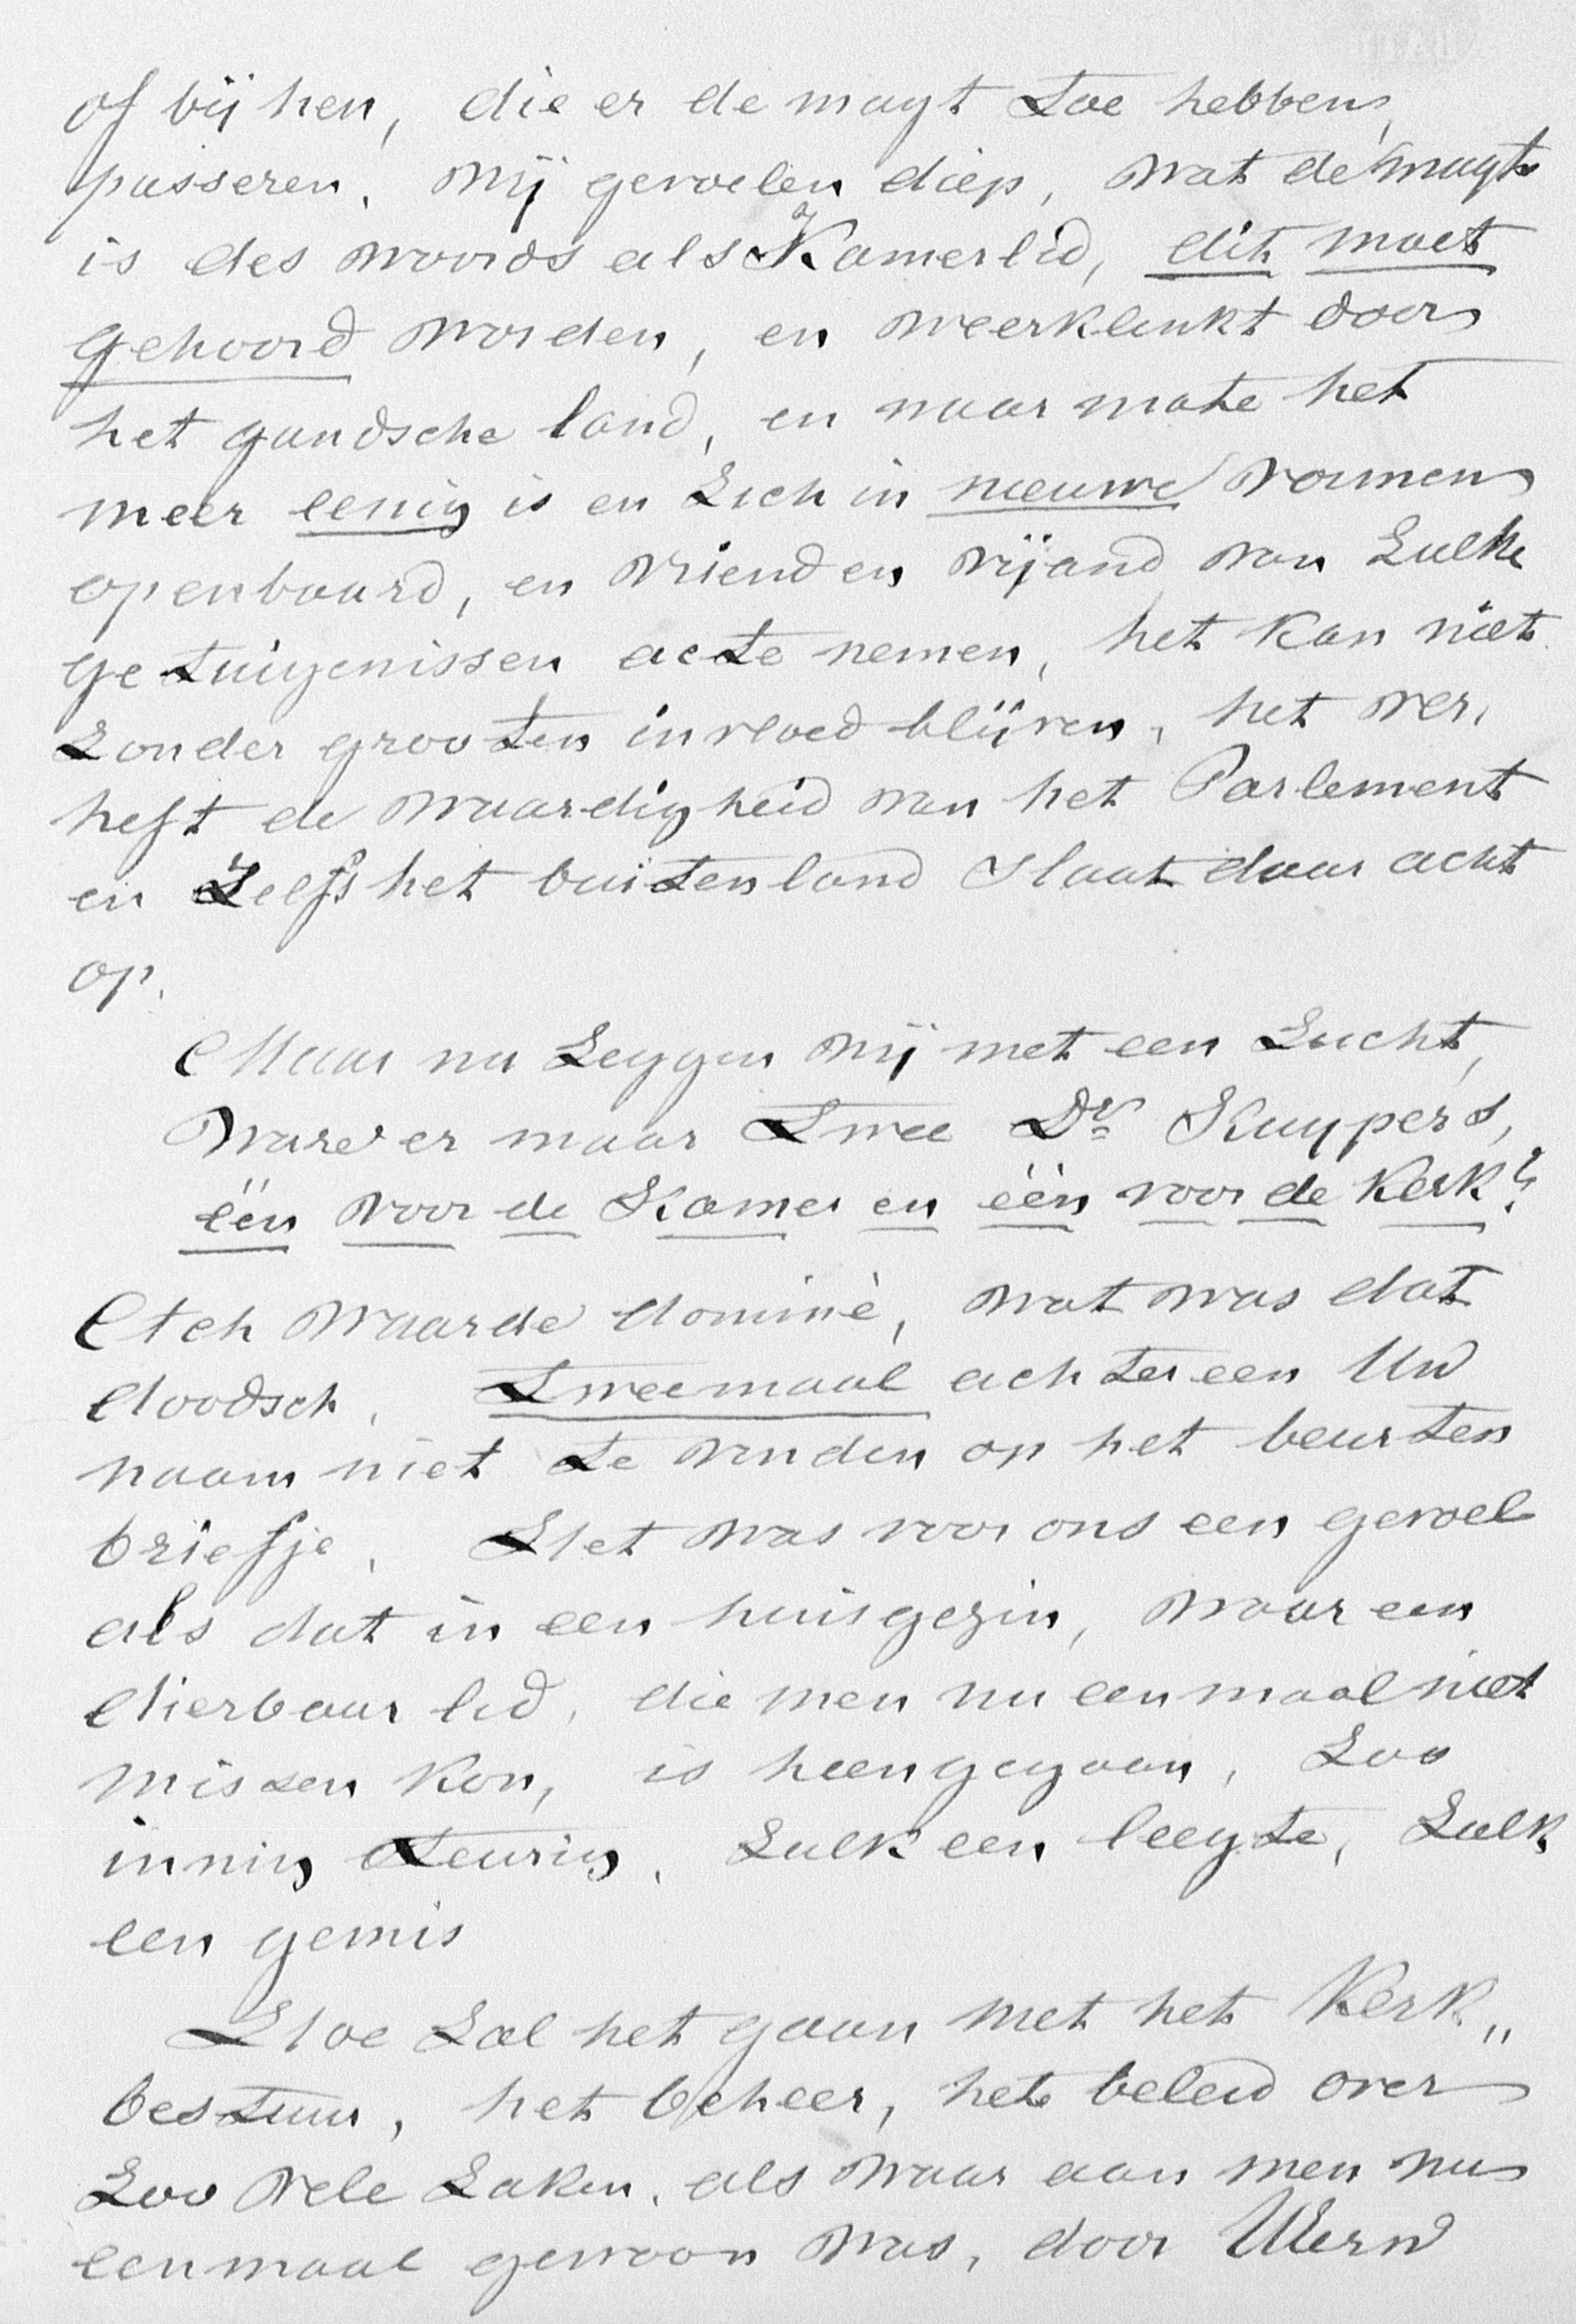 of bij hen, die er de magt toe hebben,
passeren. Wij gevoelen diep, wat de magt
is des woords als Kamerlid, dit moet
gehoord worden, en weerklinkt door
het gandsche land, en naar mate het
meer eenig is en zich in nieuwe vormen
openbaard, en vriend en vijand van zulke
getuigenissen acte nemen, het kan niet
zonder grooten invloed blijven, het ver„
heft de waardigheid van het Parlement
en zelfs het buitenland slaat daar acht
op.
Maar nu zeggen wij met een zucht,
Ware er maar twee Dr Kuypers,
één voor de Kamer en één voor de Kerk?
Ach waarde dominé, wat was dat
doodsch. Tweemaal achtereen Uw
naam niet te vinden op het beurten
briefje. Het was voor ons een gevoel
als dat in een huisgezin, waar een
dierbaar lid, die men nu eenmaal niet
missen kon, is heengegaan, zoo
innig treurig. Zulk een leegte, zulk
een gemis
Hoe zal het gaan met het Kerk„
bestuur, het beheer, het beleid over
zoo vele zaken, als waar aan men nu
eenmaal gewoon was, door Uwen